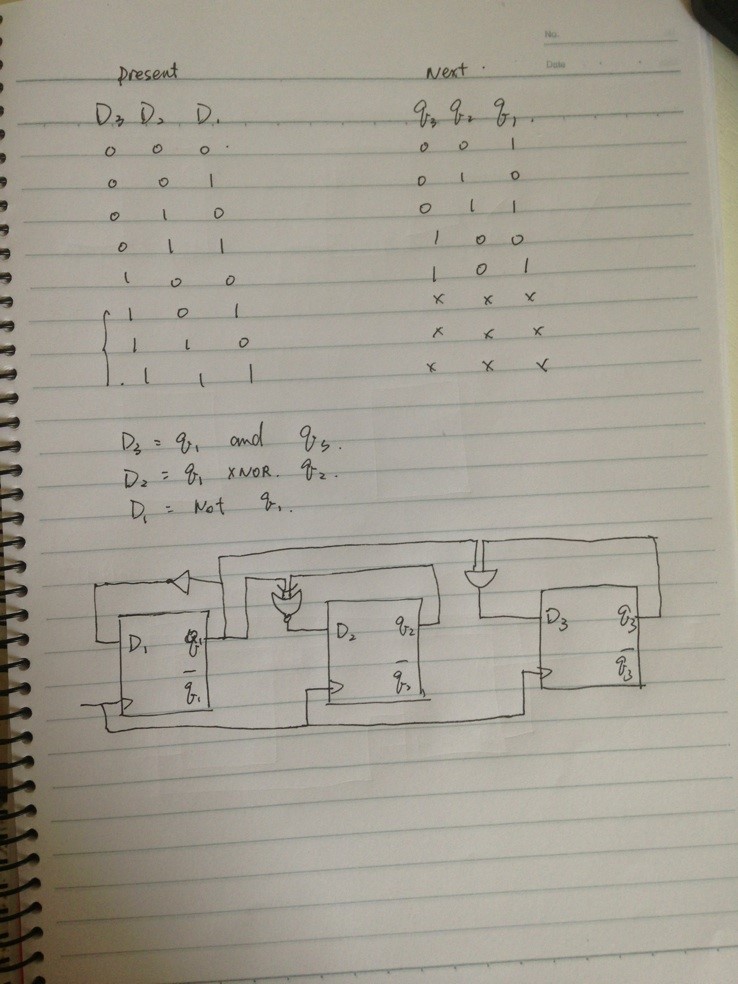 No.
Date
Present Next.
D₃ D₂ D₁ q₃ q₂ q₁.
0 0 0 0 0 1
0 0 1 0 1 0
0 1 0 0 1 1
0 1 1 1 0 0
1 0 0 1 0 1
1 0 1 x x x
1 1 0 x x x
1 1 1 x x x
D₃ = q₁ and q₃.
D₂ = q₁ XNOR. q₂.
D₁ = Not q₁.
D₁ q₁ D₂ q₂ D₃ q₃
q̅₁ q̅₂ q̅₃